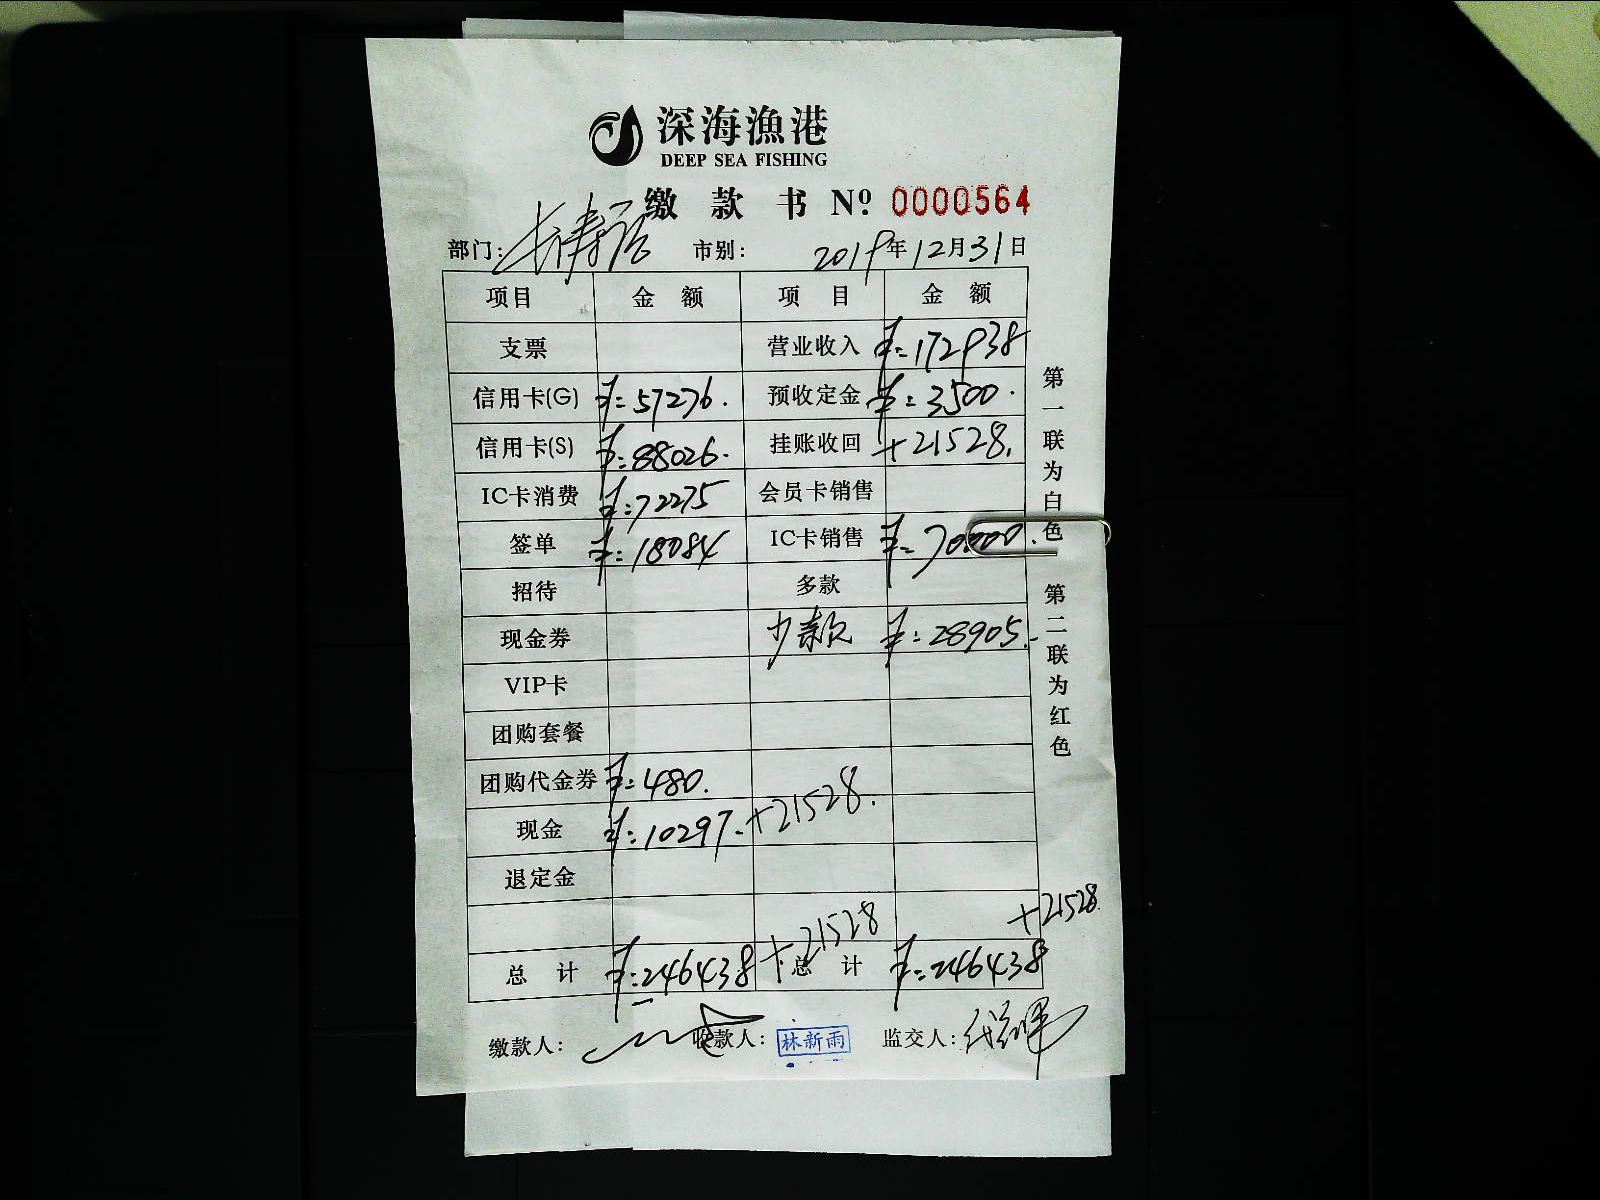 深海漁港
DEEP SEA FISHING
缴款书 Nº 0000564
部门: 长寿路 市别: 2019年12月31日
项目 金额 项目 金额
支票 营业收入 ¥:172938
信用卡(G) ¥:57276. 预收定金 ¥:3500.
信用卡(S) ¥:88026. 挂账收回 +21528.
IC卡消费 ¥:72275 会员卡销售
签单 ¥:18084 IC卡销售 ¥:70000.
招待 多款
现金券 少款 ¥:28905.-
VIP卡
团购套餐
团购代金券 ¥:480.
现金 ¥:10297. +21528.
退定金
+21528 +21528.
总计 ¥:246438 总计 ¥:246438
缴款人: 收款人: 林新雨 监交人:
第一联为白色 第二联为红色